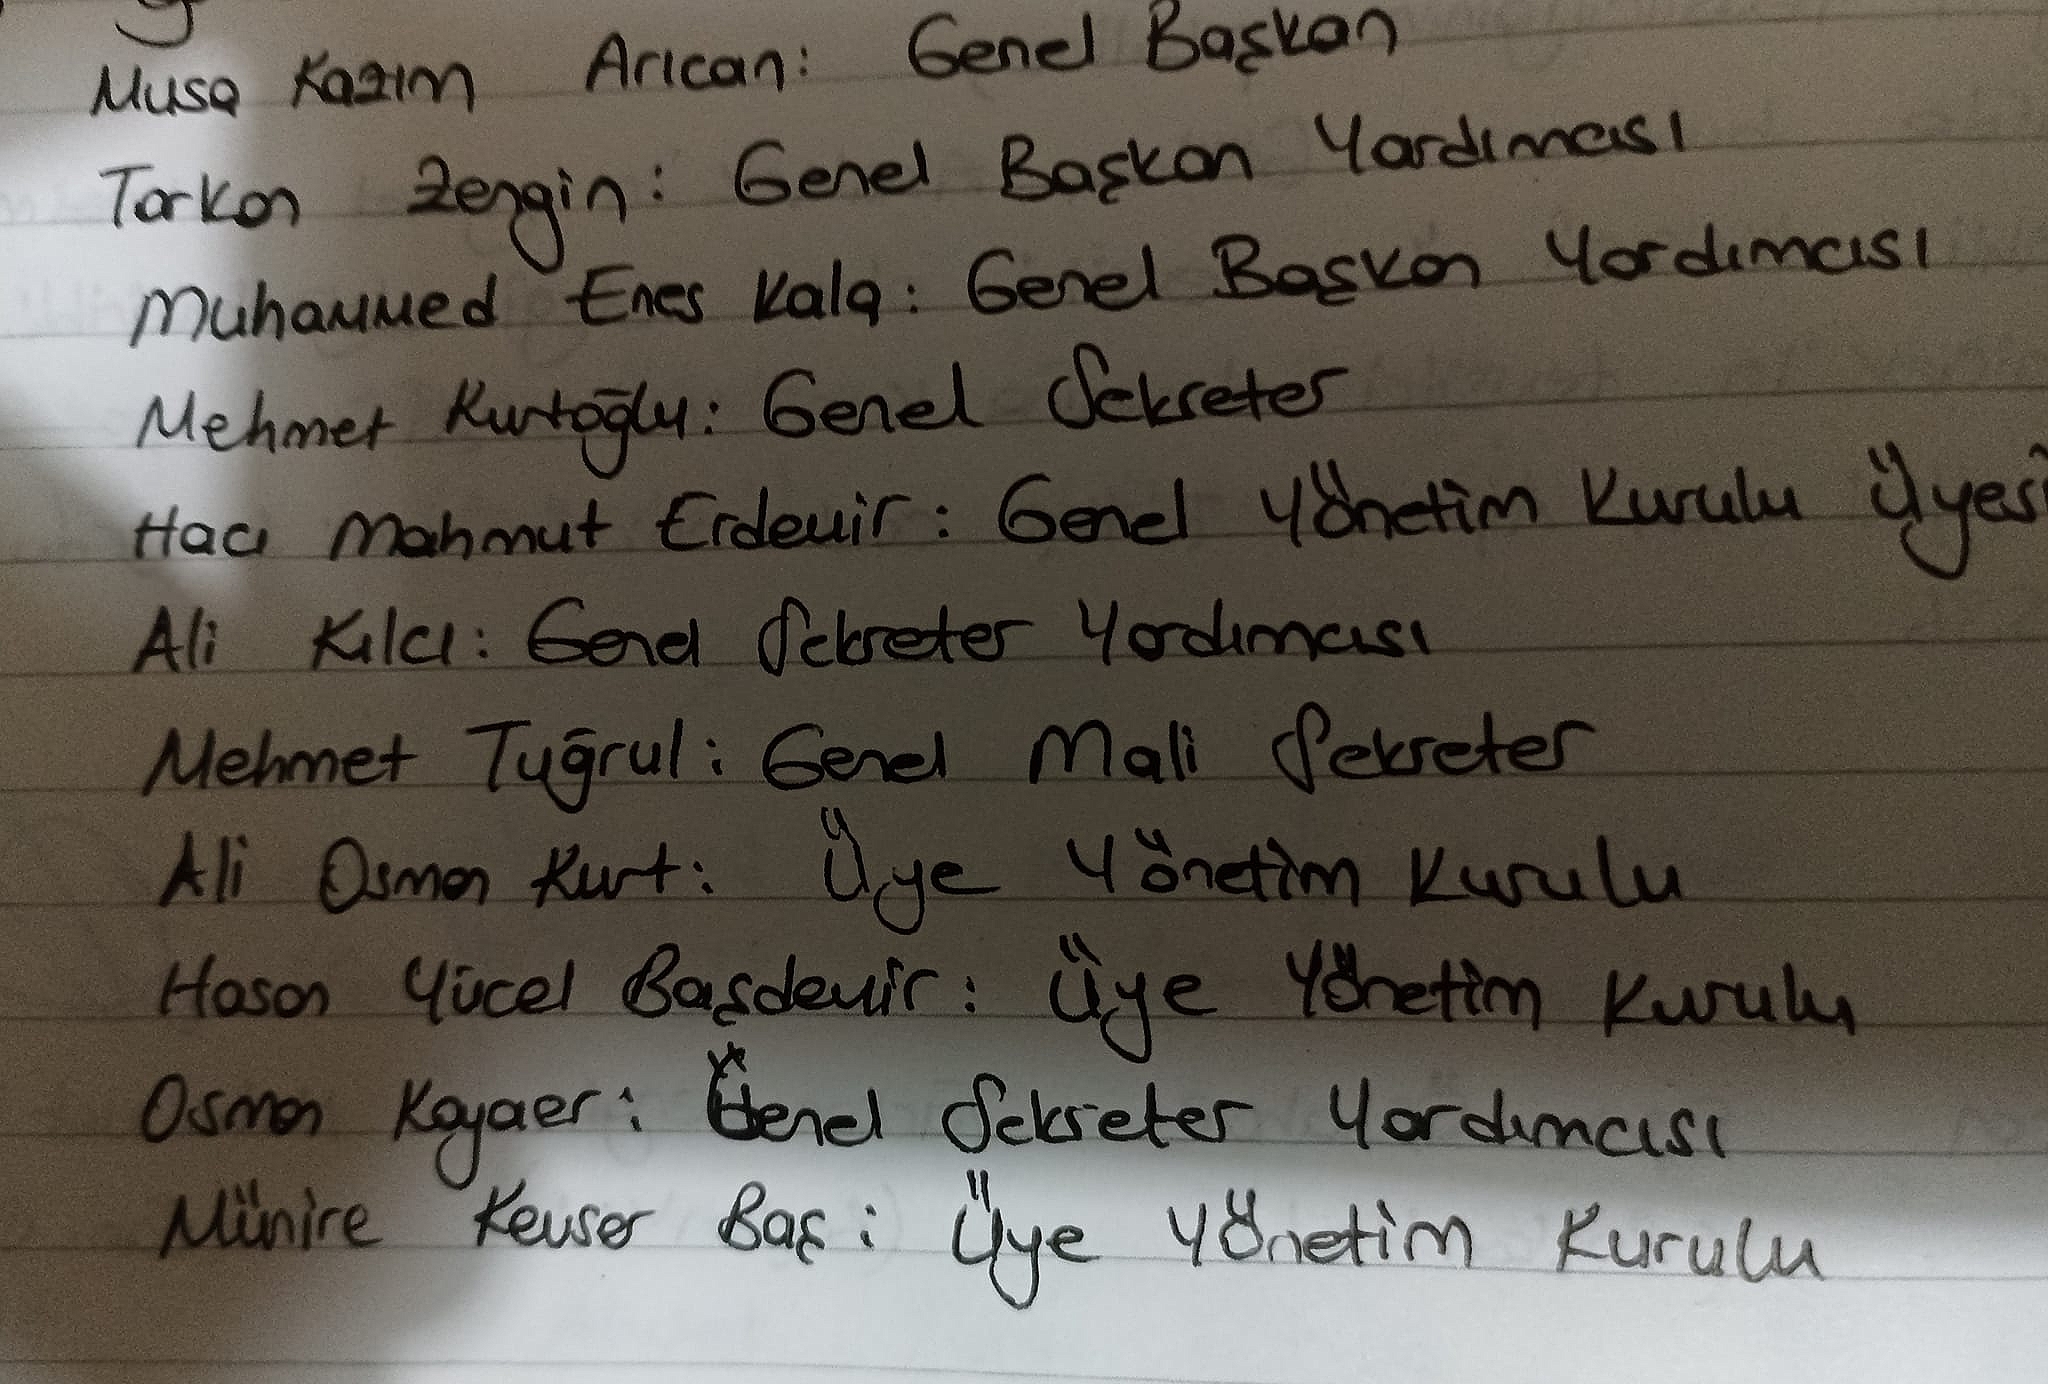 Musa Kazım Arıcan: Genel Başkan
Tarkan Zengin: Genel Başkan Yardımcısı
Muhammed Enes Kala: Genel Başkan Yardımcısı
Mehmet Kurtoğlu: Genel Sekreter
Hacı Mahmut Erdemir: Genel Yönetim Kurulu Üyesi
Ali Kılcı: Genel Sekreter Yardımcısı
Mehmet Tuğrul: Genel Mali Sekreter
Ali Osman Kurt: Üye Yönetim Kurulu
Hasan Yücel Başdemir: Üye Yönetim Kurulu
Osman Kayaer: Genel Sekreter Yardımcısı
Münire Kevser Baş: Üye Yönetim Kurulu